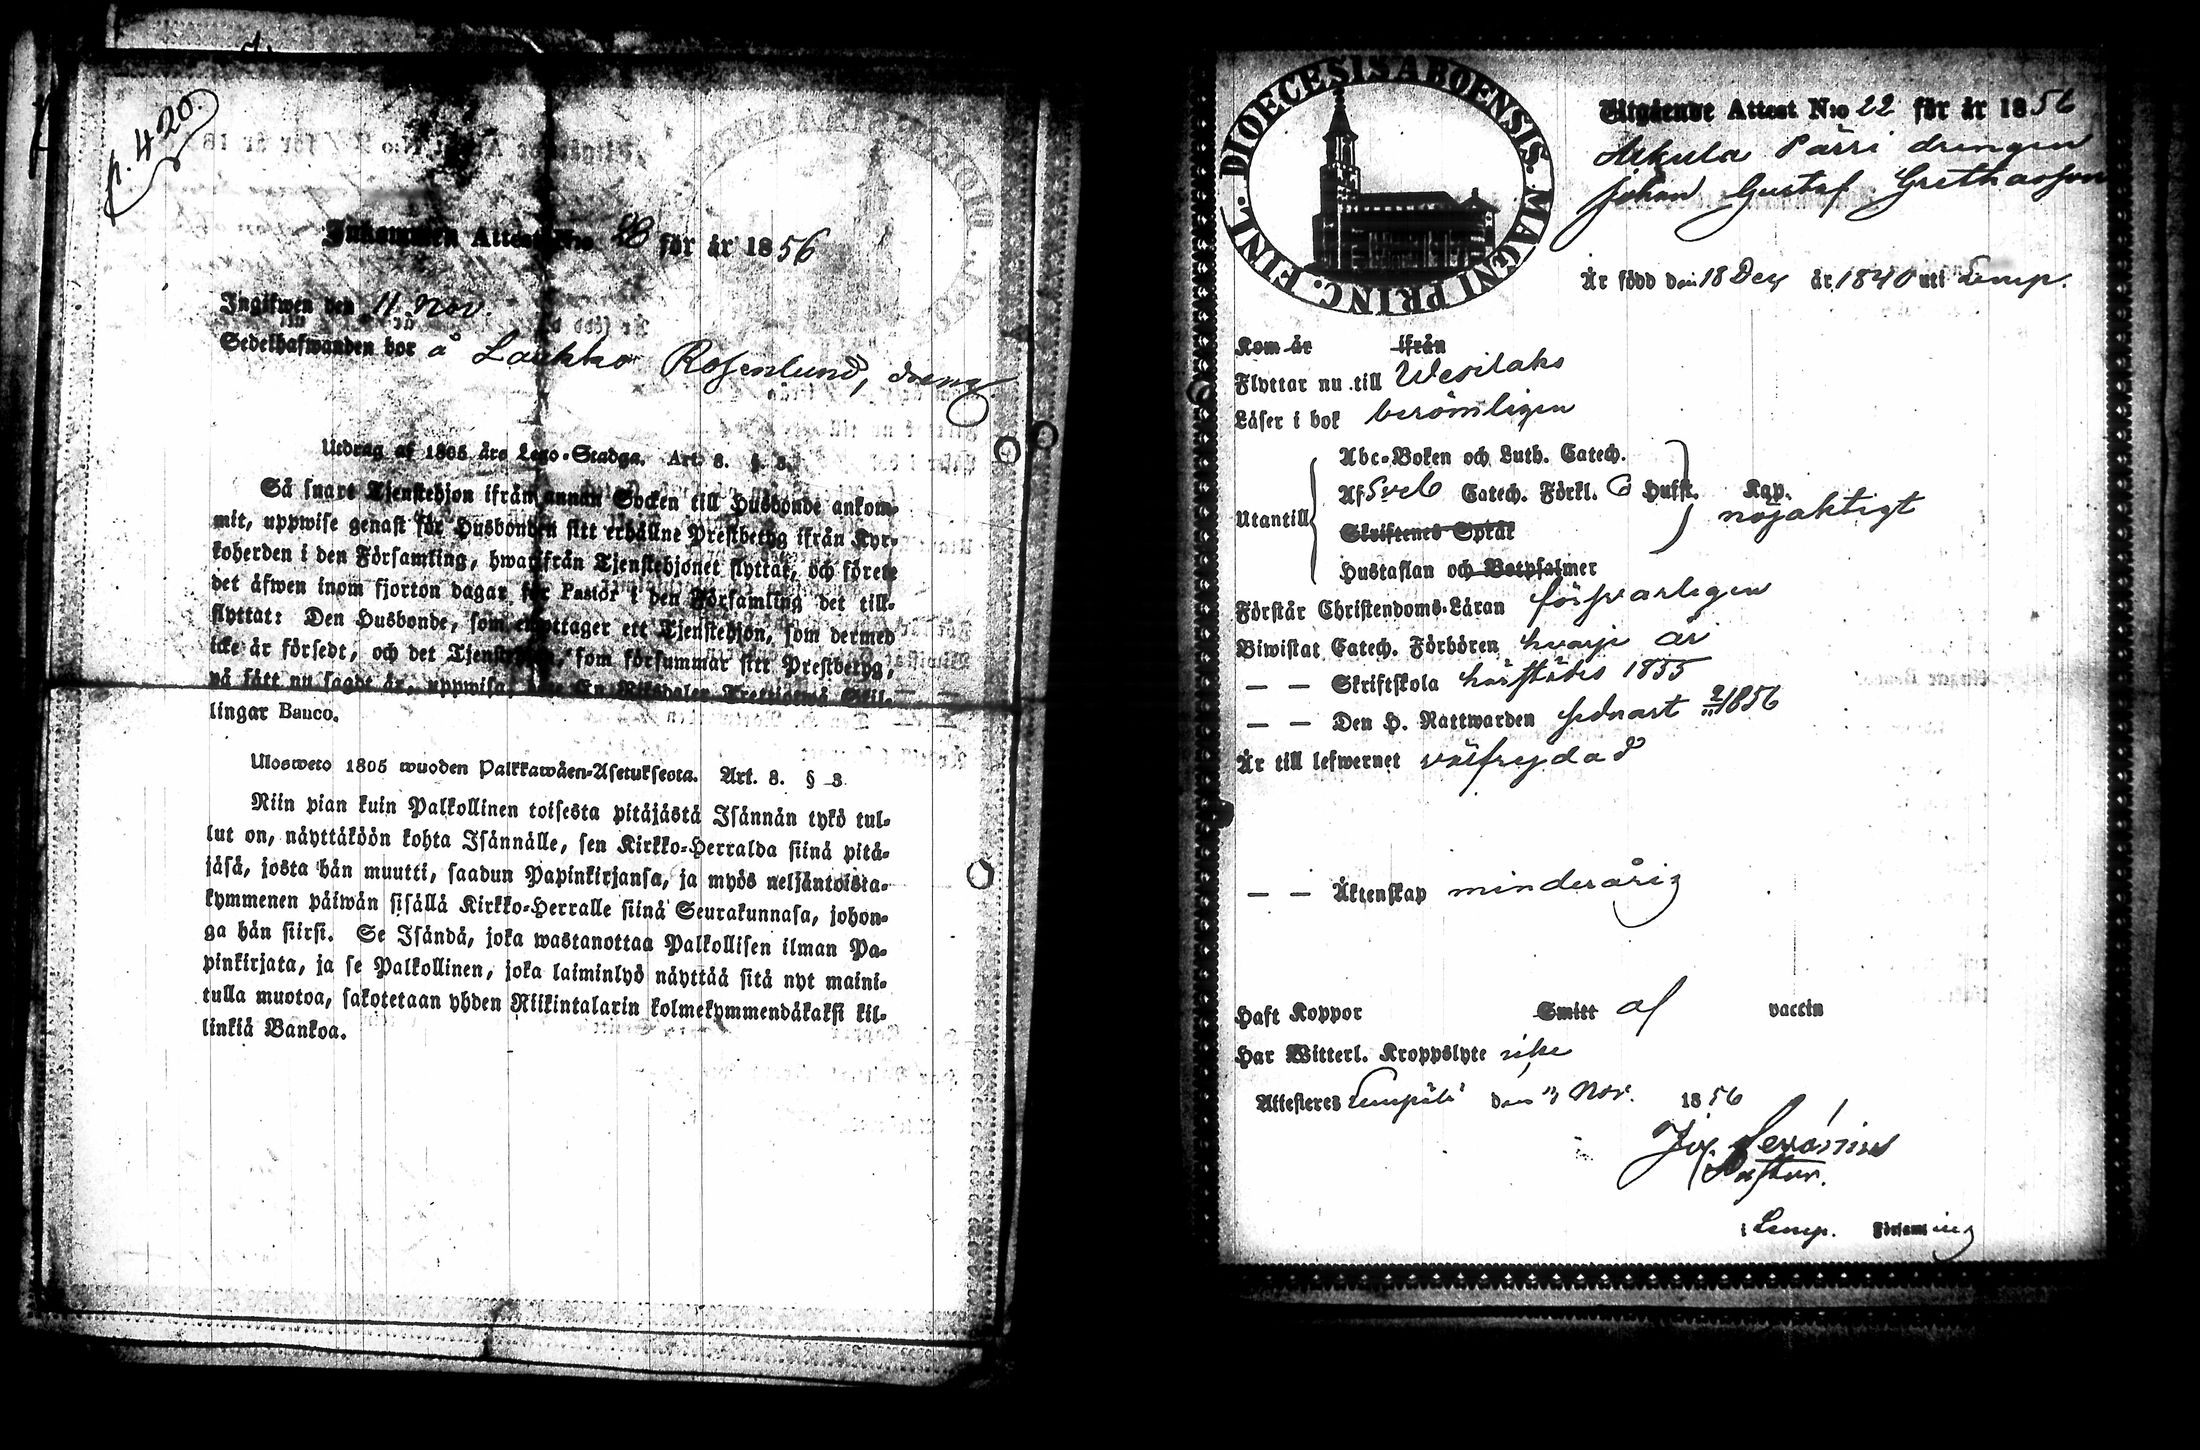 p. 420.
Inkommen Attest N:o 28 för år 1856
Ingifwen den 11 Nov.
Sedelhafwanden bor å Laukko Rosenlund, dreng
Utdrag af 1805 års Lego-Stadga. Art. 8. §. 3.
Så snart Tjenstehjon ifrån annan Socken till Husbonde ankom-
mit, uppwise genast för Husbonden sitt erhållne Prestbetyg ifrån Kyr-
koherden i den Församling, hwarifrån Tjenstehjonet flyttat, och förete
det äfwen inom fjorton dagar för Pastor i den Församling det till-
flyttat: Den Husbonde, som emottager ett Tjenstehjon, som dermed
icke är försedt, och det Tjenstehjon, som försummar sitt Prestbetyg,
på sätt nu sagdt är, uppwisa, En Riksdaler Trettiotwå Skil-
lingar Banco.
Ulosweto 1805 wuoden Palkkawäen-Asetuksesta. Art. 8. § 3
Niin pian kuin Palkollinen toisesta pitäjästä Isännän tykö tul-
lut on, näyttäköön kohta Isännälle, sen Kirkko-Herralda siinä pitä-
jäsä, josta hän muutti, saadun Papinkirjansa, ja myös neljäntoista-
kymmenen päiwän sisällä Kirkko-Herralle siinä Seurakunnasa, johon-
ga hän siirsi. Se Isändä, joka wastanottaa Palkollisen ilman Pa-
pinkirjata, ja se Palkollinen, joka laiminlyö näyttää sitä nyt maini-
tulla muotoa, sakotetaan yhden Riikintalarin kolmekymmendäkaksi kil-
linkiä Bankoa.
DIOECESIS ABOENSIS. MAGNI PRINC. FINL.
Utgående Attest N:o 22 för år 1856
Arkula Pärri drengen
Johan Gustaf Grethasson
Är född den 18 Dec år 1840 uti Lemp.
Kom år ifrån
Flyttar nu till Wesilaks
Läser i bok berömligen
Abc-Boken och Luth. Catech.
Utantill Af Sveb Catech. Förkl. 6 Hufst. Kap. nöjaktigt
Skriftenes Språk
Hustaflan och Botpsalmer
Förstår Christendoms-Läran försvarligen
Biwistat Catech. Förhören hvarje år
— — Skriftskola härstädes 1855
— — Den H. Nattwarden sednast 2/11 1856
Är till lefwernet välfrejdad
— — Äktenskap minderårig
Haft Koppor Smitt af vaccin
Har Witterl. Kroppslyte icke
Attesteres Lempälä den Nov. 1856
Pastor.
i Lemp. Församling